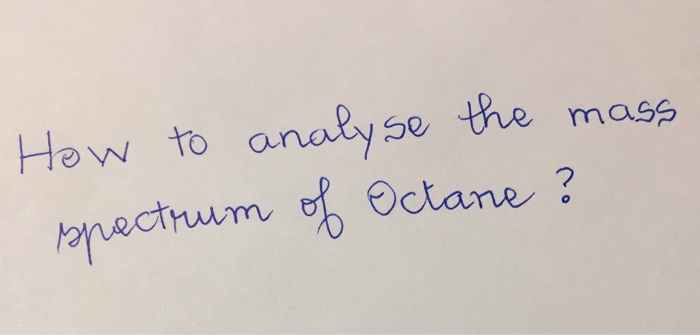 How to analyse the mass
spectrum of Octane ?